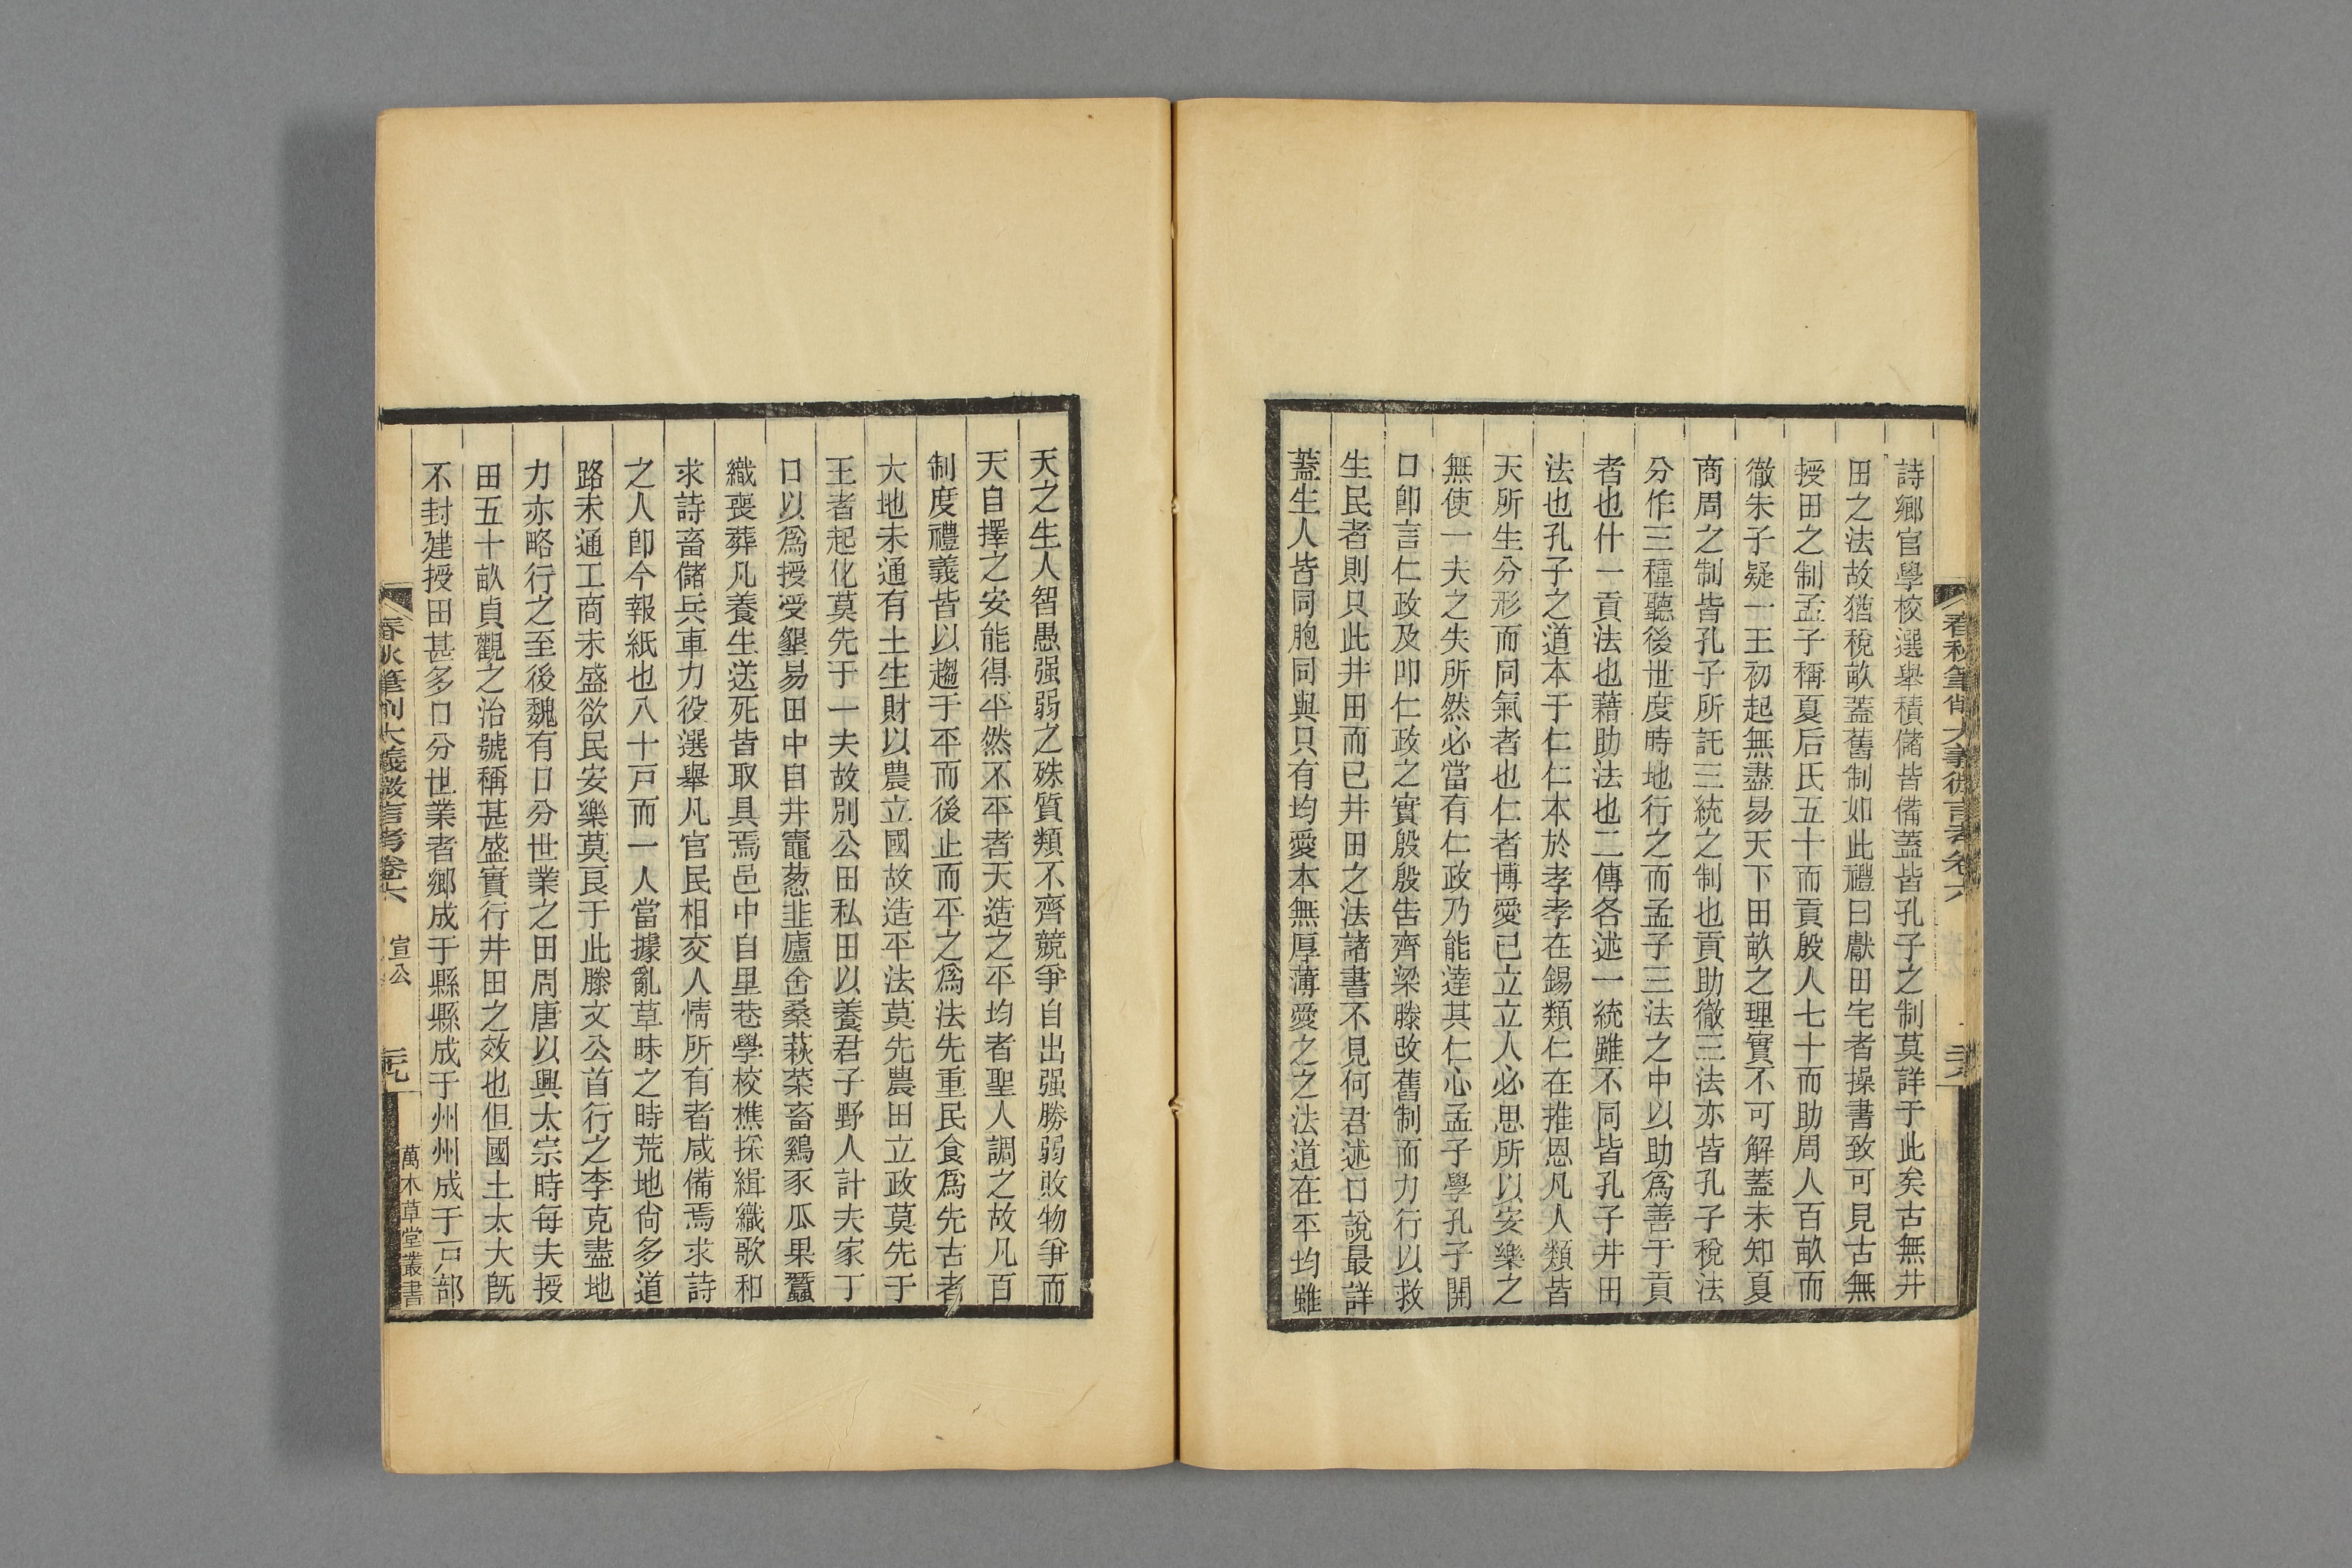 詩鄉官學校選舉積儲皆備蓋皆孔子之制莫詳于此矣古無井
田之法故猶稅畝蓋舊制如此禮曰獻田宅者操書致可見古無
授田之制孟子稱夏后氏五十而貢殷人七十而助周人百畝而
徹朱子疑一王初起無盡易天下田畝之理實不可解蓋未知夏
商周之制皆孔子所託三統之制也貢助徹三法亦皆孔子稅法
分作三種聽後世度時地行之而孟子三法之中以助爲善于貢
者也什一貢法也藉助法也二傳各述一統雖不同皆孔子井田
法也孔子之道本于仁仁本於孝孝在錫類仁在推恩凡人類皆
天所生分形而同氣者也仁者博愛已立立人必思所以安樂之
無使一夫之失所然必當有仁政乃能達其仁心孟子學孔子開
口卽言仁政及叩仁政之實殷殷吿齊梁滕改舊制而力行以救
生民者則只此井田而已井田之法諸書不見何君述口說最詳
蓋生人皆同胞同與只有均愛本無厚薄愛之之法道在平均雖
天之生人智愚强弱之殊質類不齊競爭自出强勝弱敗物爭而
天自擇之安能得平然不平者天造之平均者聖人調之故凡百
制度禮義皆以趨于平而後止而平之爲法先重民食爲先古者
大地未通有土生財以農立國故造平法莫先農田立政莫先于
王者起化莫先于一夫故別公田私田以養君子野人計夫家丁
口以爲授受墾易田中自井竈葱韭廬舍桑萩菜畜鷄豕瓜果蠶
織喪葬凡養生送死皆取具焉邑中自里巷學校樵採緝織歌和
求詩畜儲兵車力役選舉凡官民相交人情所有者咸備焉求詩
之人卽今報紙也八十戸而一人當據亂草昧之時荒地尙多道
路未通工商未盛欲民安樂莫良于此滕文公首行之李克盡地
力亦略行之至後魏有口分世業之田周唐以興太宗時每夫授
田五十畝貞觀之治號稱甚盛實行井田之效也但國土太大旣
不封建授田甚多口分世業者鄉成于縣縣成于州州成于戸部
春秋筆削大義微言考卷六
宣公
萬木草堂叢書